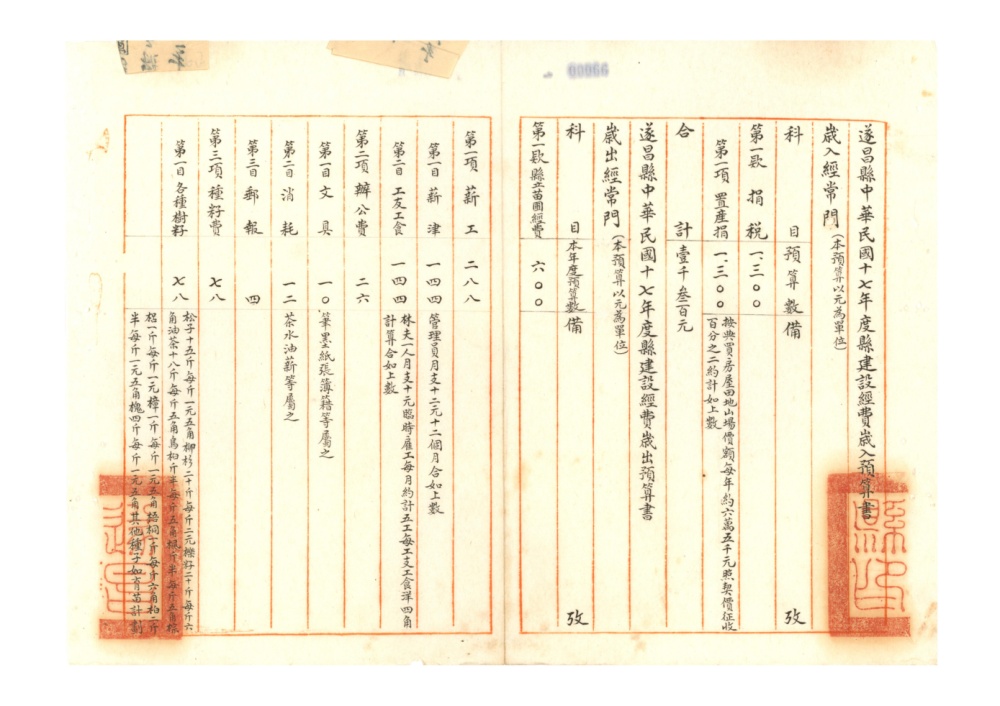 00066
遂昌縣中華民國十七年度縣建設經費歲入預算書
歲入經常門（本預算以元為單位）
科目 預算數 備攷
第一欵 捐稅 一、三〇〇
第一項 置產捐 一、三〇〇 按典買房屋田地山場價額每年約六萬五千元照契價征收
百分之二約計如上數
合計 壹千叁百元
遂昌縣中華民國十七年度縣建設經費歲出預算書
歲出經常門（本預算以元為單位）
科目 本年度預算數 備攷
第一欵 縣立苗圃經費 六〇〇
第一項 薪工 二八八
第一目 薪津 一四四 管理員月支十二元十二個月合如上數
第二目 工友工食 一四四 林夫一人月支十元臨時雇工每月約計五工每工支工食洋四角
計算合如上數
第二項 辦公費 二六
第一目 文具 一〇 筆墨紙張簿藉等屬之
第二目 消耗 一二 茶水油薪等屬之
第三目 郵報 四
第三項 種籽費 七八
第一目 各種樹籽 七八 松子十五斤每斤一元五角柳杉二十斤每斤二元櫟籽二十斤每斤六
角油茶十八斤每斤五角烏桕斤半每斤五角
梠一斤每斤一元樟一斤每斤一元五角梧桐一斤每斤六角柏二斤
半每斤一元五角槐四斤每斤一元五角其他種子如育苗計劃